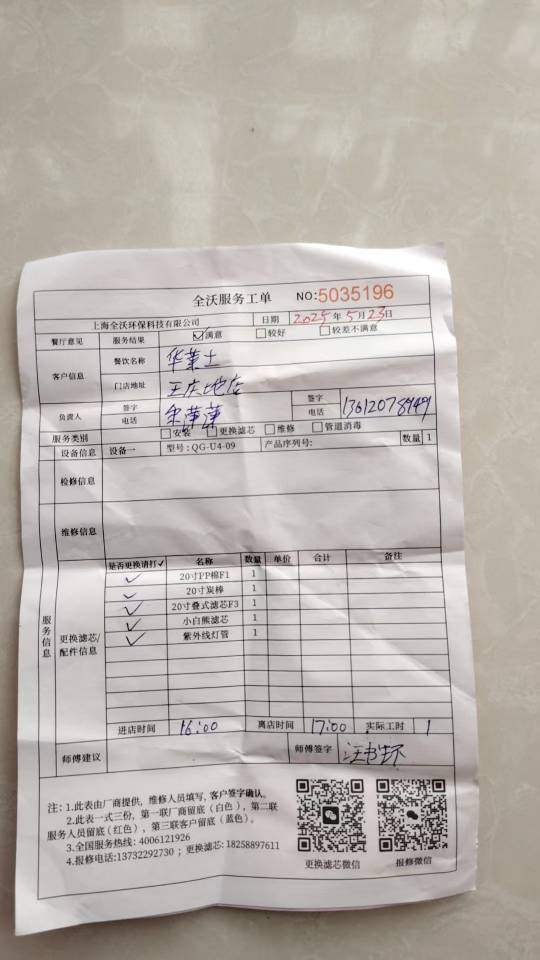 全沃服务工单 NO:5035196
上海全沃环保科技有限公司 日期 2025年5月23日
餐厅意见 服务结果 ☑满意 □较好 □较差不满意
客户信息 餐饮名称 华莱士
门店地址 地店
负责人 签字 电话 签字 电话 13612078949
服务类别 □安装 □更换滤芯 □维修 □管道消毒
设备信息 设备一 型号:QG-U4-09 产品序列号: 数量 1
检修信息
维修信息
服务信息
更换滤芯/配件信息
是否更换请打✓ 名称 数量 单价 合计 备注
✓ 20寸PP棉F1 1
✓ 20寸炭棒 1
✓ 20寸叠式滤芯F3 1
✓ 小白熊滤芯 1
✓ 紫外线灯管 1
进店时间 16:00 离店时间 17:00 实际工时 1
师傅建议 师傅签字
注:1.此表由厂商提供,维修人员填写,客户签字确认。
2.此表一式三份,第一联厂商留底(白色),第二联
服务人员留底(红色),第三联客户留底(蓝色)。
3.全国服务热线:4006121926
4.报修电话:13732292730;更换滤芯:18258897611
更换滤芯微信 报修微信